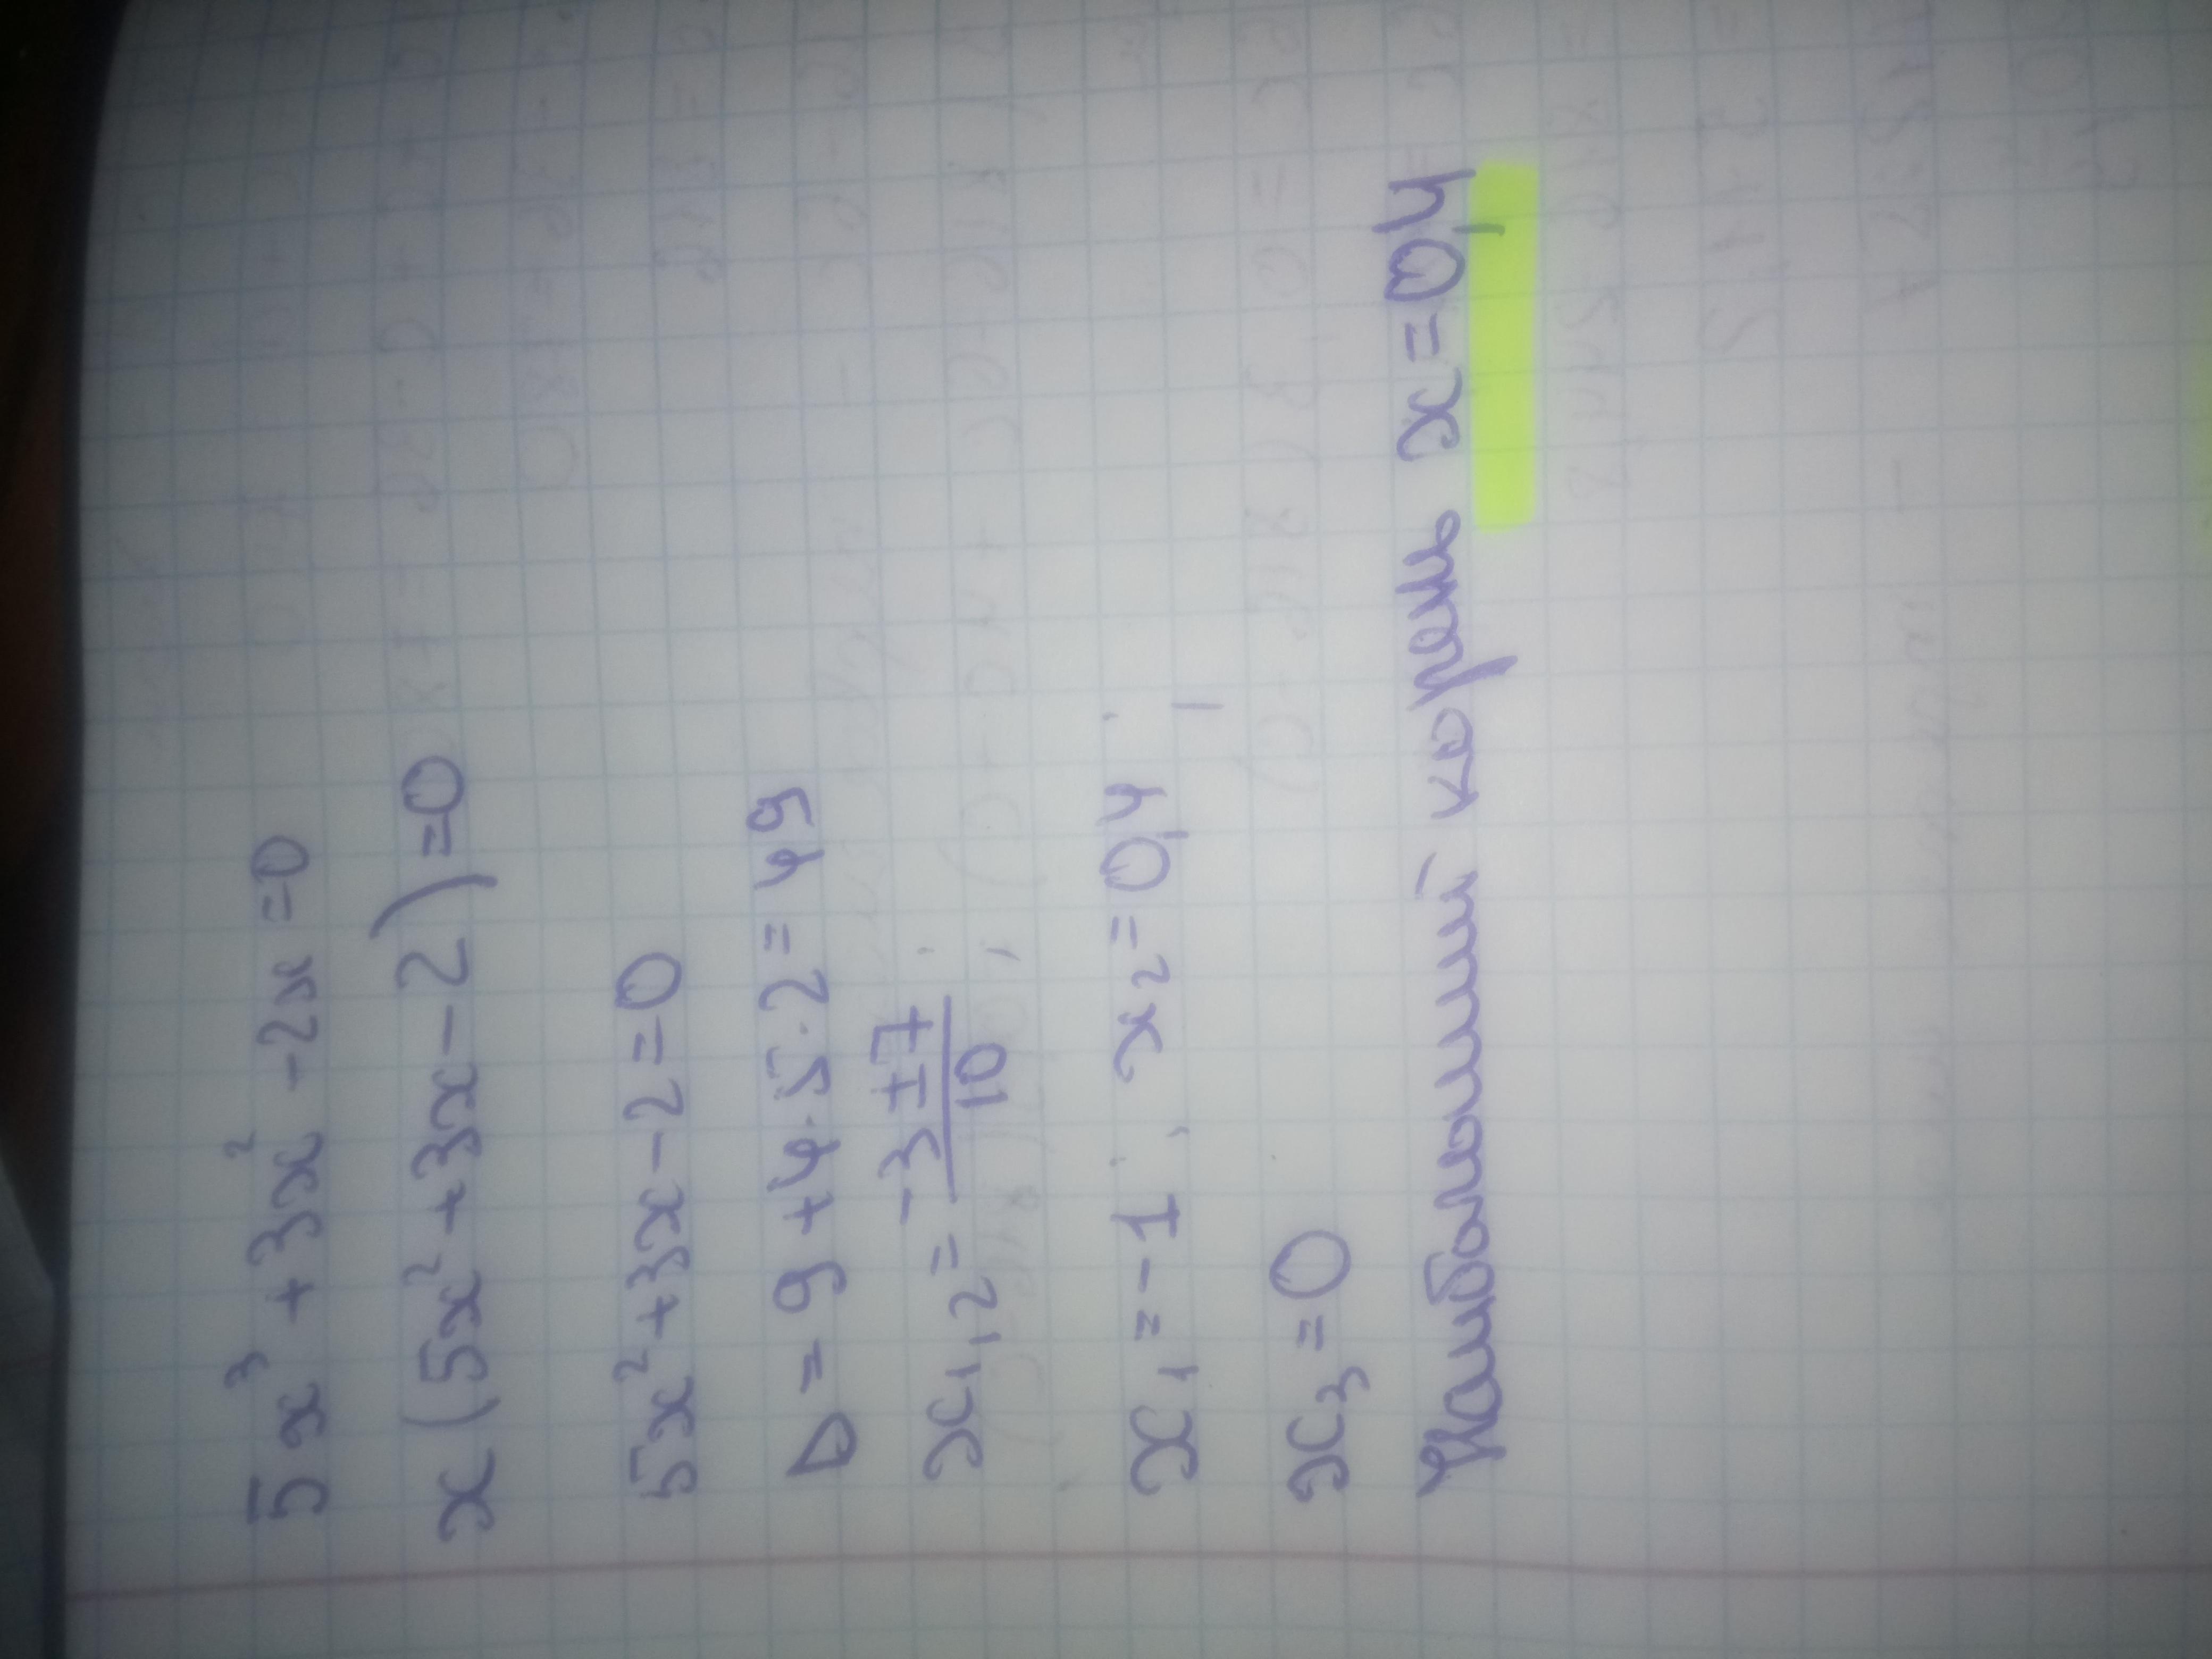 5x³ + 3x² - 2x = 0
x(5x² + 3x - 2) = 0
5x² + 3x - 2 = 0
D = 9 + 4·5·2 = 49
x₁,₂ = (-3 ± 7)/10
x₁ = -1 x₂ = 0,4
x₃ = 0
Наибольший корень x = 0,4